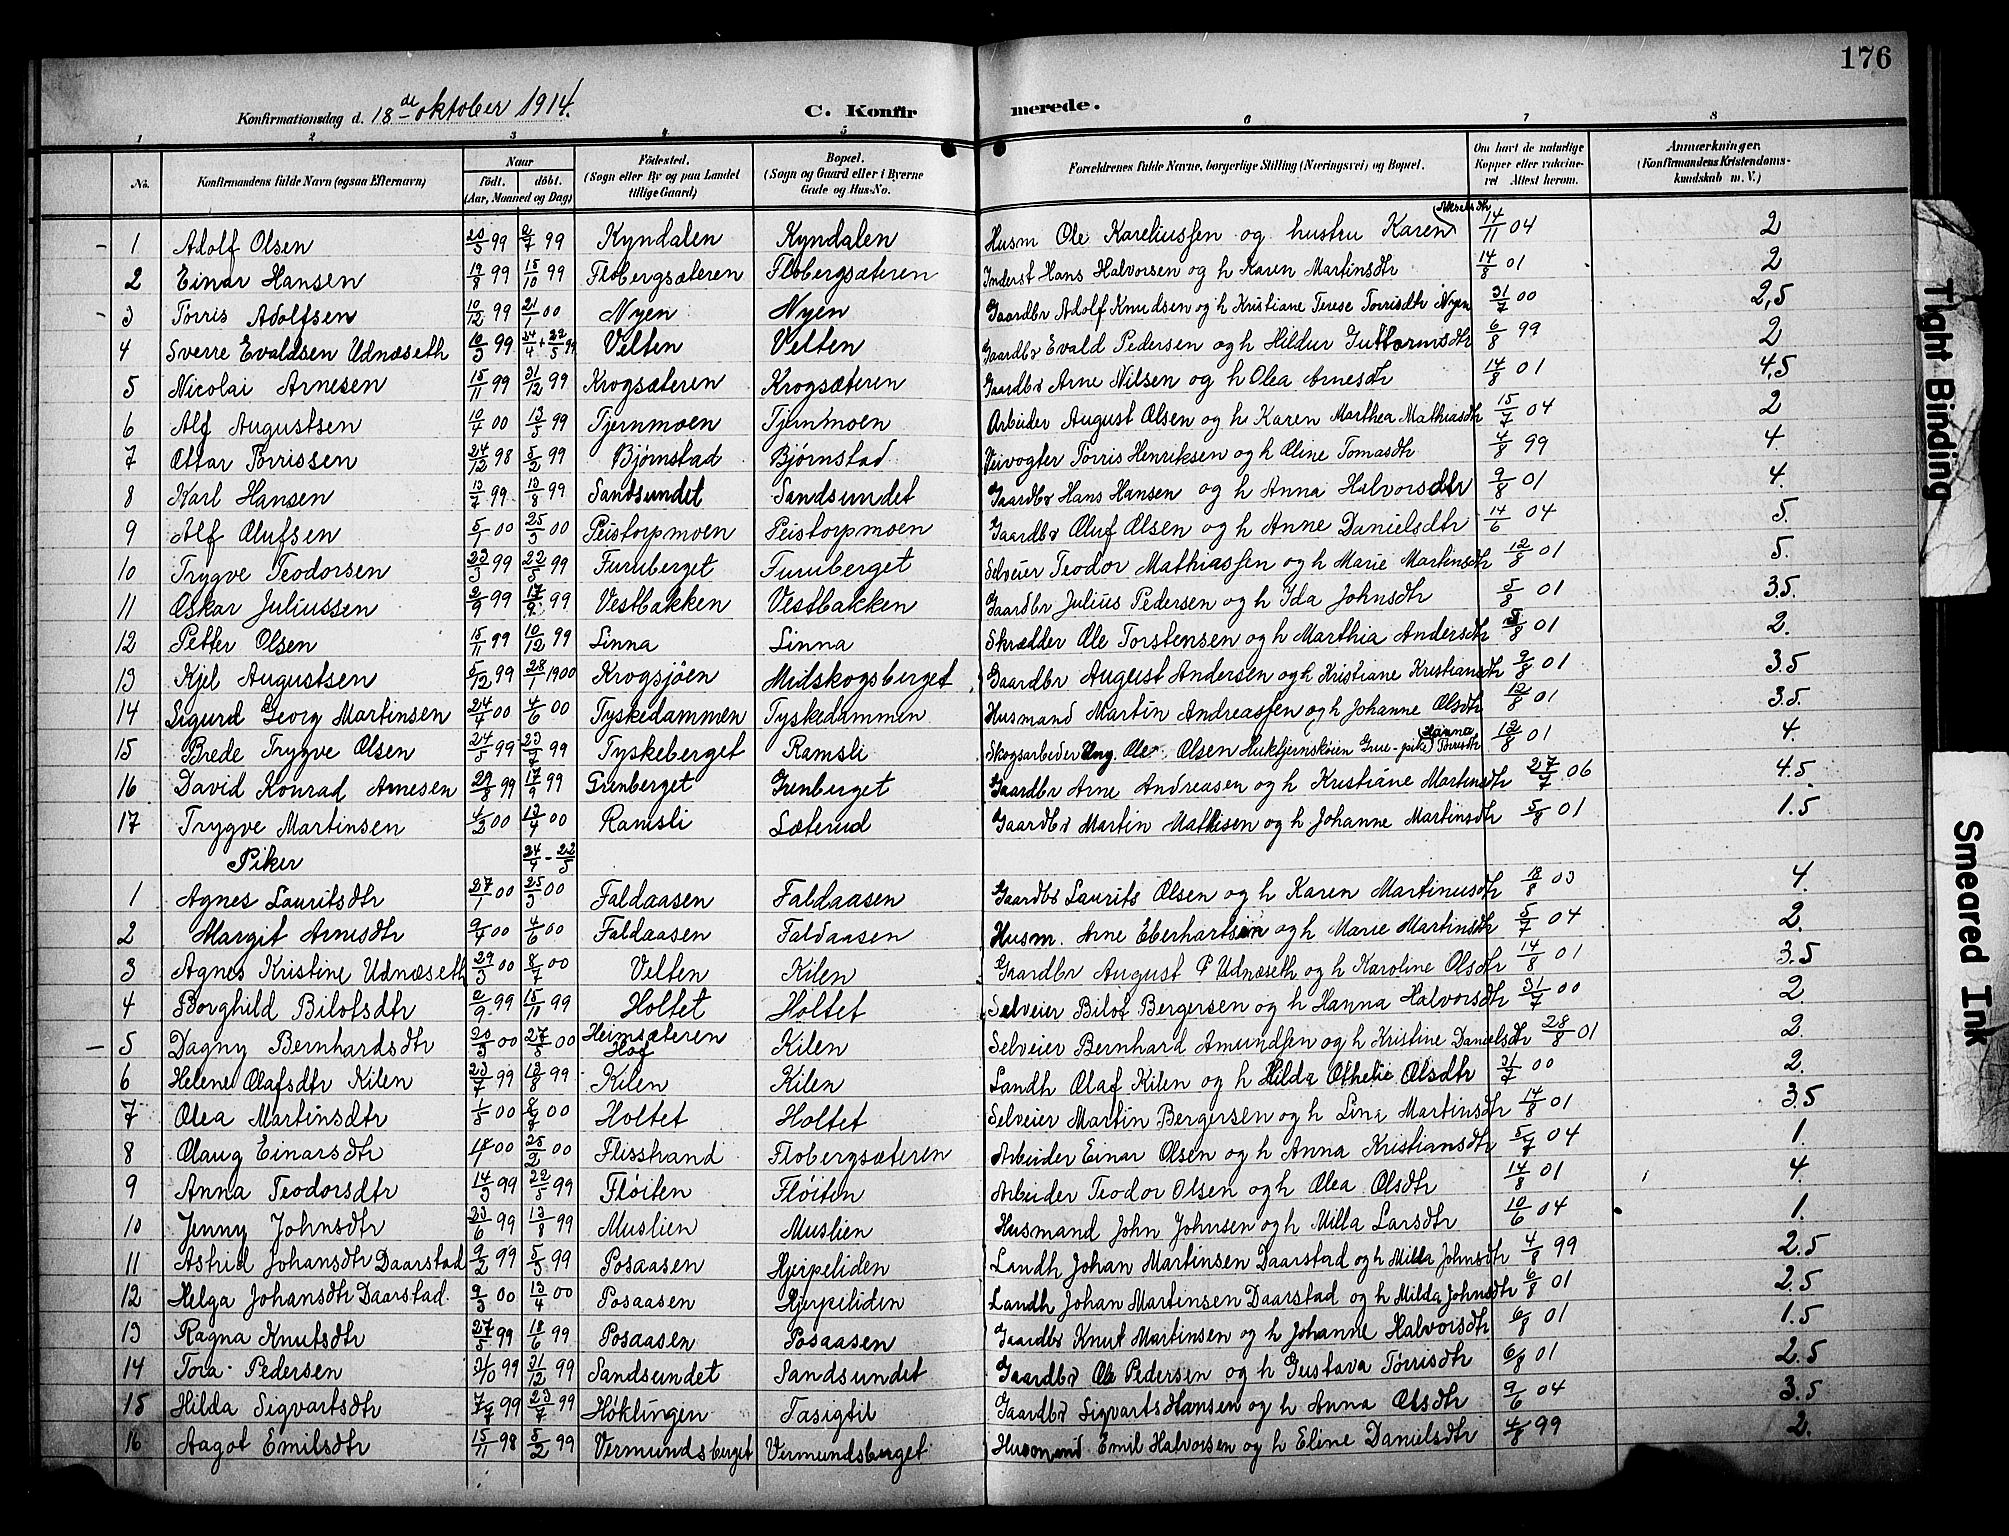 176
Konfirmationsdag d. 18de oktober 1914. C. Konfirmerede.
1 2 3 4 5 6 7 8
No. Konfirmandens fulde Navn (ogsaa Efternavn) Naar født. døbt. (Aar, Maaned og Dag) Fødested. (Sogn eller By og paa Landet tillige Gaard) Bopæl. (Sogn og Gaard eller i Byerne Gade og Hus-No. Forældrenes fulde Navne, borgerlige Stilling (Næringsvei) og Bopæl. Om havt de naturlige Kopper eller vaccineret Attest herom. Anmærkninger. (Konfirmandens Kristendomskundskab m. V.)
1 Adolf Olsen 20/3 99 2/7 99 Kyndalen Kyndalen Husm Ole Kareliussen og hustru Karen 14/11 04 2
2 Einar Hansen 19/8 99 15/10 99 Flobergsæteren Flobergsæteren Inderst Hans Halvorsen og h Karen Martinsdtr 14/8 01 2
3 Torris Adolfsen 10/12 99 21/1 00 Nyen Nyen Gaardbr Adolf Knudsen og h Kristiane Terese Torrisdtr Nyen 31/7 00 2,5
4 Sverre Evaldsen Udnæseth 10/3 99 24/4 + 22/5 99 Velten Velten Gaardbr Evald Pedersen og h Hildur Guttormsdtr 6/8 99 2
5 Nicolai Arnesen 15/11 99 31/12 99 Krogsæteren Krogsæteren Gaardbr Arne Nilsen og h Olea Arnesdtr 14/8 01 4,5
6 Alf Augustsen 10/4 00 13/5 99 Tjernmoen Tjernmoen Arbeider August Olsen og h Karen Marthea Mathiasdtr 15/7 04 2
7 Ottar Torrissen 24/12 98 5/2 99 Bjørnstad Bjørnstad Veivogter Torris Henriksen og h Oline Tomasdtr 4/8 99 4.
8 Karl Hansen 13/7 99 13/8 99 Sandsundet Sandsundet Gaardbr Hans Hansen og h Anna Halvorsdtr 9/8 01 4.
9 Alf Olufsen 5/1 00 25/3 00 Peistorpmoen Peistorpmoen Gaardbr Oluf Olsen og h Anne Danielsdtr 14/6 04 5.
10 Trygve Teodorsen 23/3 99 22/5 99 Furuberget Furuberget Selveier Teodor Mathiassen og h Marie Martinsdtr 12/8 01 5.
11 Oskar Juliussen 2/9 99 17/9 99 Vestbakken Vestbakken Gaardbr Julius Pedersen og h Ida Johnsdtr 5/8 01 3.5.
12 Petter Olsen 15/11 99 10/12 99 Linna Linna Skrædder Ole Torstensen og h Marthia Andersdtr 5/8 01 2.
13 Kjel Augustsen 5/12 99 28/1 1900 Krogsjøen Midskogsberget Gaardbr August Andersen og h Kristiane Kristiansdtr 9/8 01 3.5
14 Sigurd Georg Martinsen 24/4 00 4/6 00 Tyskedammen Tyskedammen Husmand Martin Andreassen og h Johanne Olsdtr 12/8 01 3.5.
15 Brede Trygve Olsen 24/5 99 23/7 99 Tyskeberget Ramsli Skogsarbeder Ung. Ole Olsen Huktjernskøien Grue - pike Hanna Torrisdtr 12/8 01 4
16 David Konrad Arnesen 29/8 99 17/9 99 Grenberget Grenberget Gaardbr Arne Andreasen og h Kristiane Martinsdtr 27/7 06 4.5
17 Trygve Martinsen 4/2 00 13/4 00 Ramsli Sæterud Gaardbr Martin Mathisen og h Johanne Martinsdtr 5/8 01 1.5
Piker 24/4 - 22/5
1 Agnes Lauritsdtr 27/1 00 25/3 00 Faldaasen Faldaasen Gaardbr Laurits Olsen og h Karen Martinusdtr 18/8 03 4.
2 Margit Arnesdtr 9/4 00 4/6 00 Faldaasen Faldaasen Husm. Arne Eberhartsen og h Marie Martinsdtr 5/7 04 2.
3 Agnes Kristine Udnæseth 29/3 00 8/7 00 Velten Kilen Gaardbr August P Udnæseth og h Karoline Olsdtr 14/8 01 3.5
4 Borghild Bilofsdtr 2/9 99 15/10 99 Holtet Holtet Selveier Bilof Bergersen og h Hanna Halvorsdtr 31/7 00 2
5 Dagny Bernhardsdtr 20/3 00 27/5 00 Heimsæteren Hof Kilen Selveier Bernhard Amundsen og h Kristine Danielsdtr 28/8 01 2.
6 Helene Olafsdtr Kilen 23/7 99 13/8 99 Kilen Kilen Landh Olaf Kilen og h Hilda Othelie Olsdtr 31/7 00 2.
7 Olea Martinsdtr 1/5 00 8/7 00 Holtet Holtet Selveier Martin Bergersen og h Lina Martinsdtr 14/8 01 3.5
8 Olaug Einarsdtr 00 25/2 00 Flisstrand Flobergsæteren Arbeider Einar Olsen og h Anna Kristiansdtr 5/7 04 1.
9 Anna Teodorsdtr 14/3 99 22/5 99 Fløiten Fløiten Arbeider Teodor Olsen og h Olea Olsdtr 14/8 01 4.
10 Jenny Johnsdtr 23/6 99 13/8 99 Muslien Muslien Husmand John Johnsen og h Milla Larsdtr 10/6 04 1.
11 Astrid Johansdtr Daarstad 9/2 99 5/3 99 Posaasen Hjerpeliden Landh Johan Martinsen Daarstad og h Milda Johnsdtr 4/8 99 2.5
12 Helga Johansdtr Daarstad. 9/3 00 13/4 00 Posaasen Hjerpeliden Landh Johan Martinsen Daarstad og h Milda Johnsdtr 6/8 01 2.5
13 Ragna Knutsdtr 27/5 99 18/6 99 Posaasen Posaasen Gaardbr Knut Martinsen og h Johanne Halvorsdtr 6/8 01 1.5
14 Tora Pedersen 99 31/12 99 Sandsundet Sandsundet Gaardbr Ole Pedersen og h Gustava Torrisdtr 6/8 01 2.5
15 Hilda Sigvartsdtr 7/7 99 23/7 99 Høklingen Tasigtil Gaardbr Sigvart Hansen og h Anna Olsdtr 9/6 04 3.5
16 Aagot Emilsdtr 15/11 98 5/2 99 Vermundsberget Vermundsberget Husmand Emil Halvorsen og h Eline Danielsdtr 4/8 99 2.
Tight Binding
Smeared Ink